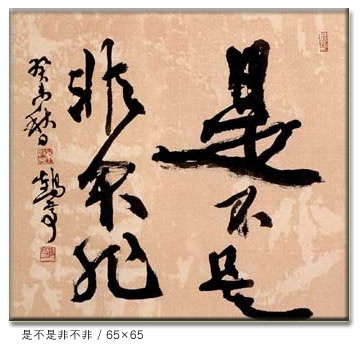 是不是
非不非
癸未秋日
是不是非不非 / 65×65